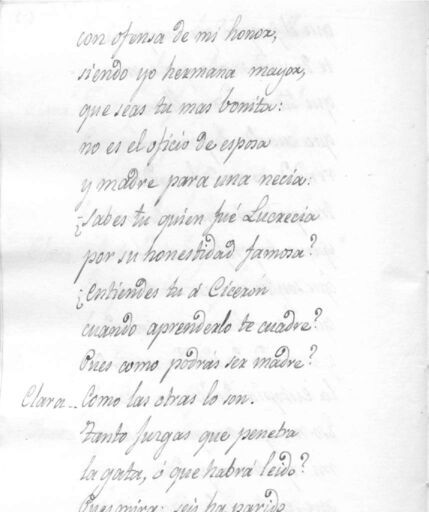 con ofensa de mi honor,
siendo yo hermana mayor,
que seas tu mas bonita:
no es el oficio de esposa
y madre para una necia:
¿sabes tu quien fué Lucrecia
por su honestidad famosa?
¿entiendes tu á Ciceron
cuando aprenderlo te cuadre?
Pues como podrás ser madre?
Clara.. Como las otras lo son.
Tanto juzgas que penetra
la gata, ó que habrá leido?
Pues mira: seis ha parido